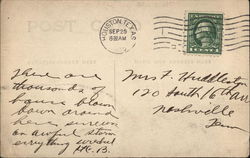 POST CARD
HOUSTON, TEXAS
SEP 25
11 30 AM
There are
thousands of
houses blown
down around
here.
an awful storm
every thing wrecked
H.C.B.
Mrs F. Huddleston
120 South 16th ave
Nashville
Tenn